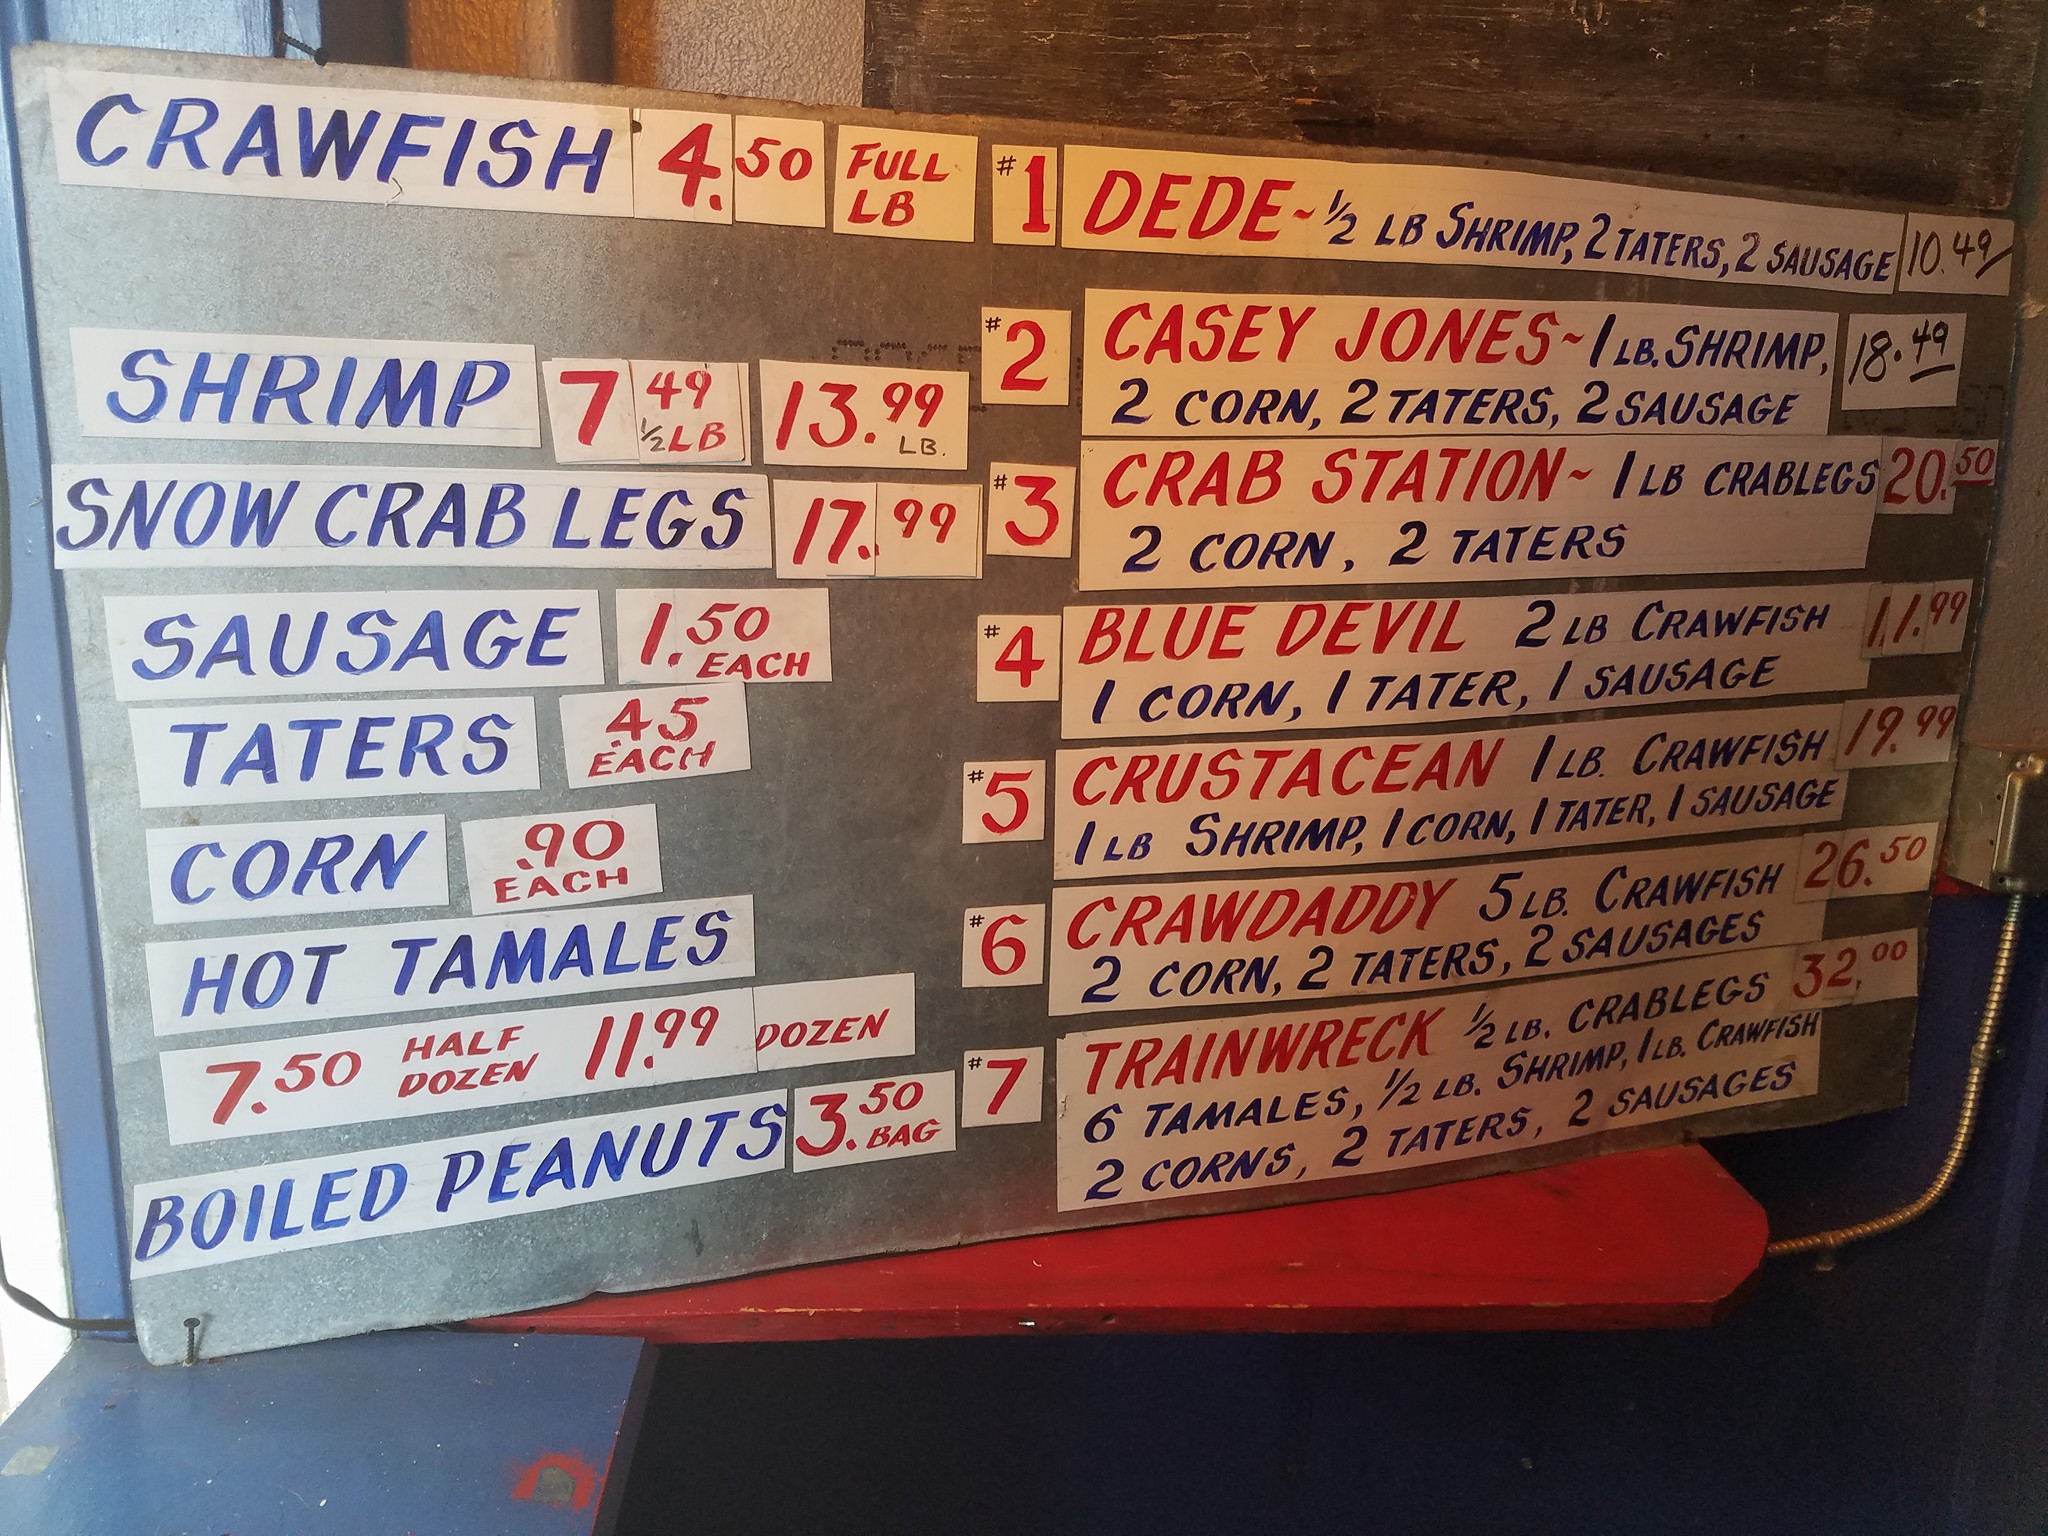 CRAWFISH 4.50 FULL LB
SHRIMP 7 49 ½ LB 13.99 LB.
SNOW CRAB LEGS 17.99
SAUSAGE 1.50 EACH
TATERS .45 EACH
CORN .90 EACH
HOT TAMALES
7.50 HALF DOZEN 11.99 DOZEN
BOILED PEANUTS 3.50 BAG
#1 DEDE~ ½ LB SHRIMP, 2 TATERS, 2 SAUSAGE 10.49
#2 CASEY JONES~ 1 LB. SHRIMP, 18.49
2 CORN, 2 TATERS, 2 SAUSAGE
#3 CRAB STATION~ 1 LB CRABLEGS 20.50
2 CORN, 2 TATERS
#4 BLUE DEVIL 2 LB CRAWFISH 11.99
1 CORN, 1 TATER, 1 SAUSAGE
#5 CRUSTACEAN 1 LB. CRAWFISH 19.99
1 LB SHRIMP, 1 CORN, 1 TATER, 1 SAUSAGE
#6 CRAWDADDY 5 LB. CRAWFISH 26.50
2 CORN, 2 TATERS, 2 SAUSAGES
#7 TRAINWRECK ½ LB. CRABLEGS 32.00
6 TAMALES, ½ LB. SHRIMP, 1 LB. CRAWFISH
2 CORNS, 2 TATERS, 2 SAUSAGES